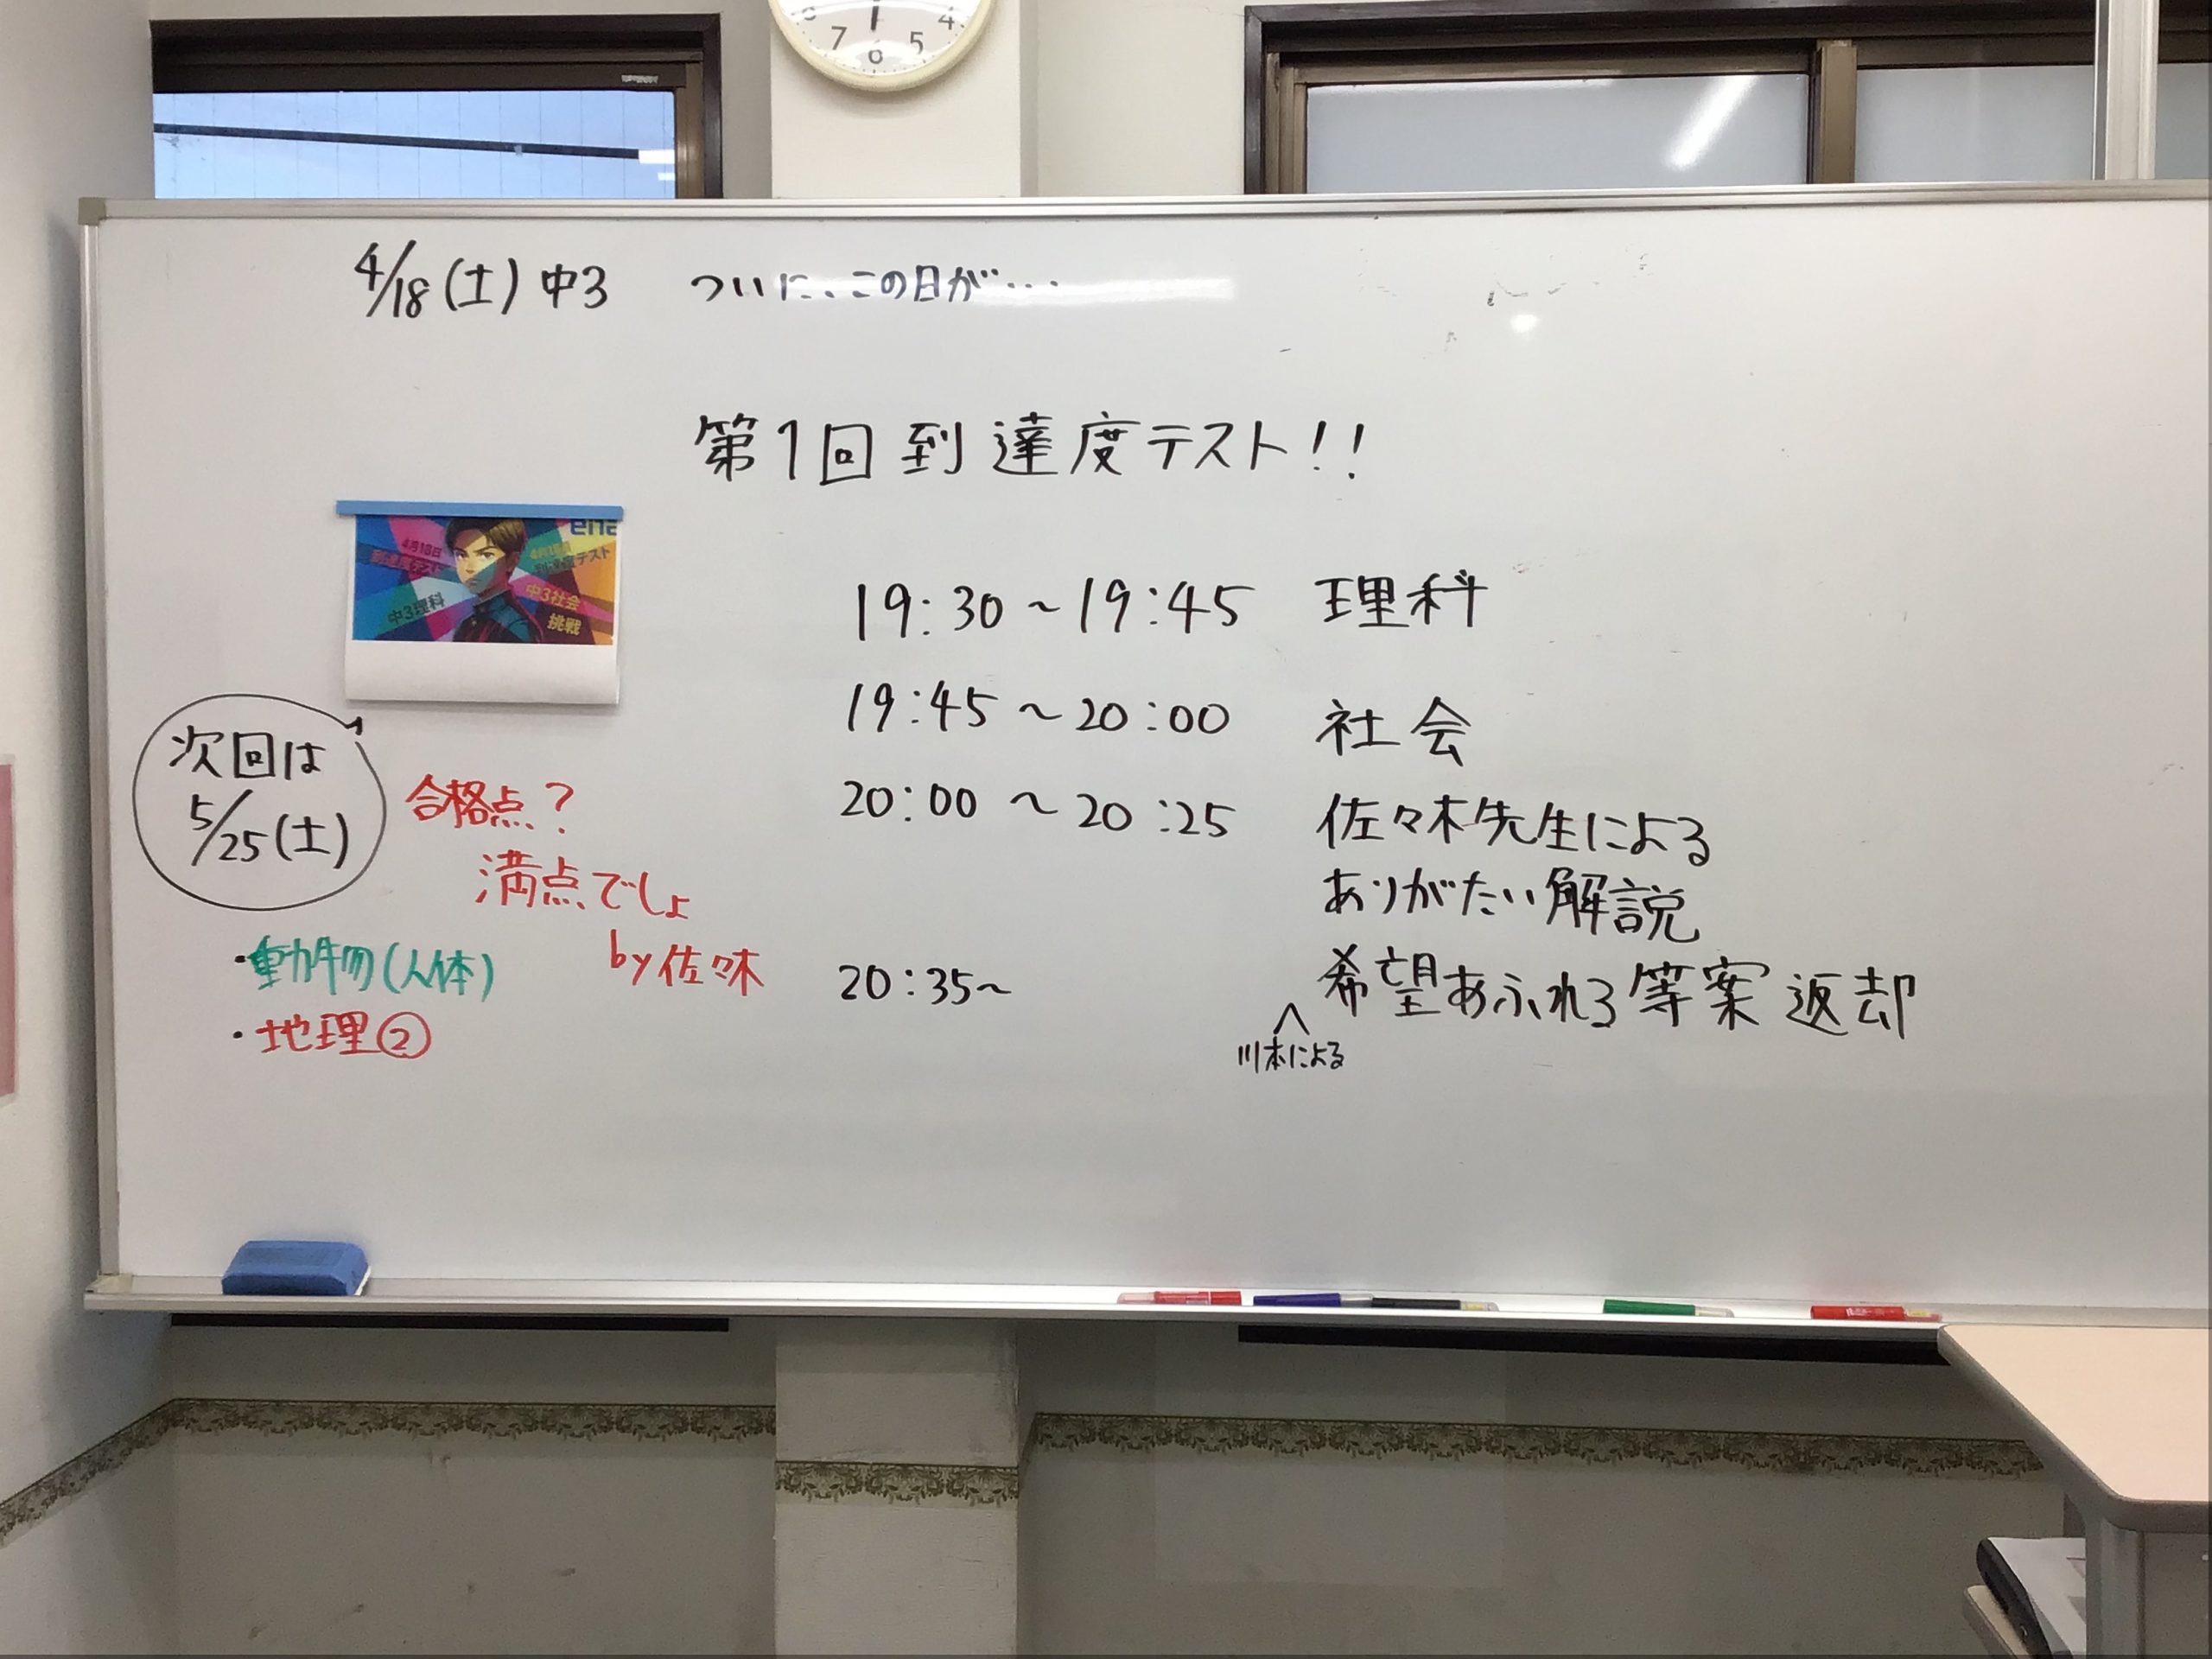 4/18(土)中3 ついに、この日が…
第1回到達度テスト!!
ena
4月18日
到達度テスト
中3理科
4月18日
到達度テスト
中3社会
挑戦
19:30〜19:45 理科
19:45〜20:00 社会
20:00〜20:25 佐々木先生による
ありがたい解説
20:35〜 希望あふれる等案返却
川本による
次回は
5/25(土)
合格点?
満点でしょ
by佐々木
・動物(人体)
・地理②
7 6 5 4